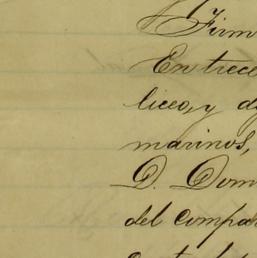 Firm
En trece
liceo, y d
marinos,
D. Dom
del compar